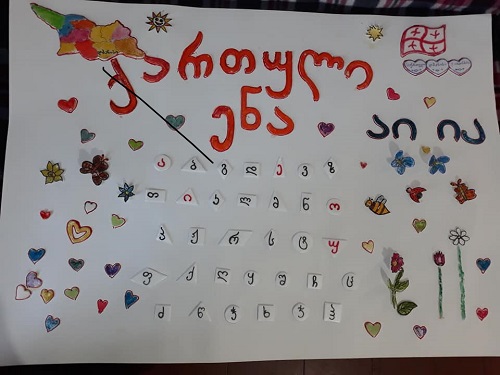 ქართული
ენა
აი ია
ა ბ გ დ ე ვ ზ
თ ი კ ლ მ ნ ო
პ ჟ რ ს ტ უ
ფ ქ ღ ყ შ ჩ ც
ძ წ ჭ ხ ჯ ჰ